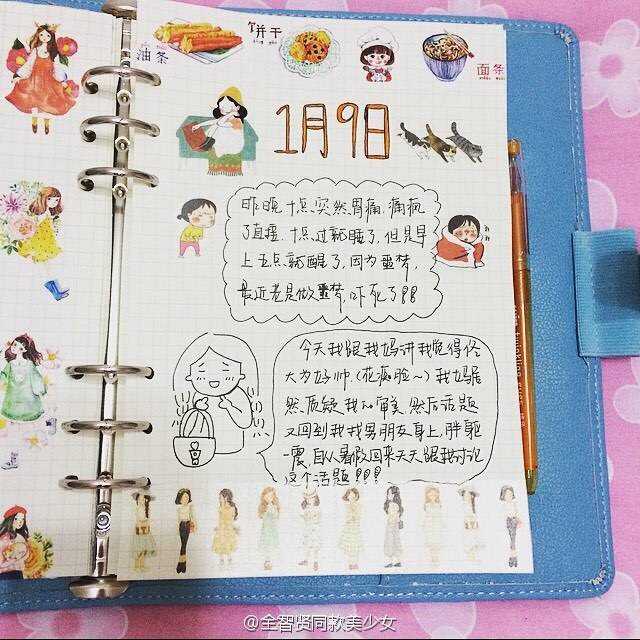 油条
饼干
bǐng gān
面条
1月9日
昨晚十点突然胃痛,痛疯
了直接,十点过就睡了,但是早
上五点就醒了,因为噩梦,
最近老是做噩梦,吓死了!!
今天我跟我妈讲我觉得佟
大为好帅,(花痴脸~)我妈居
然质疑我の审美,然后话题
又回到我找男朋友身上,胖躯
一震,自从暑假回来天天跟我讨论
这个话题!!!
@全智贤同款美少女